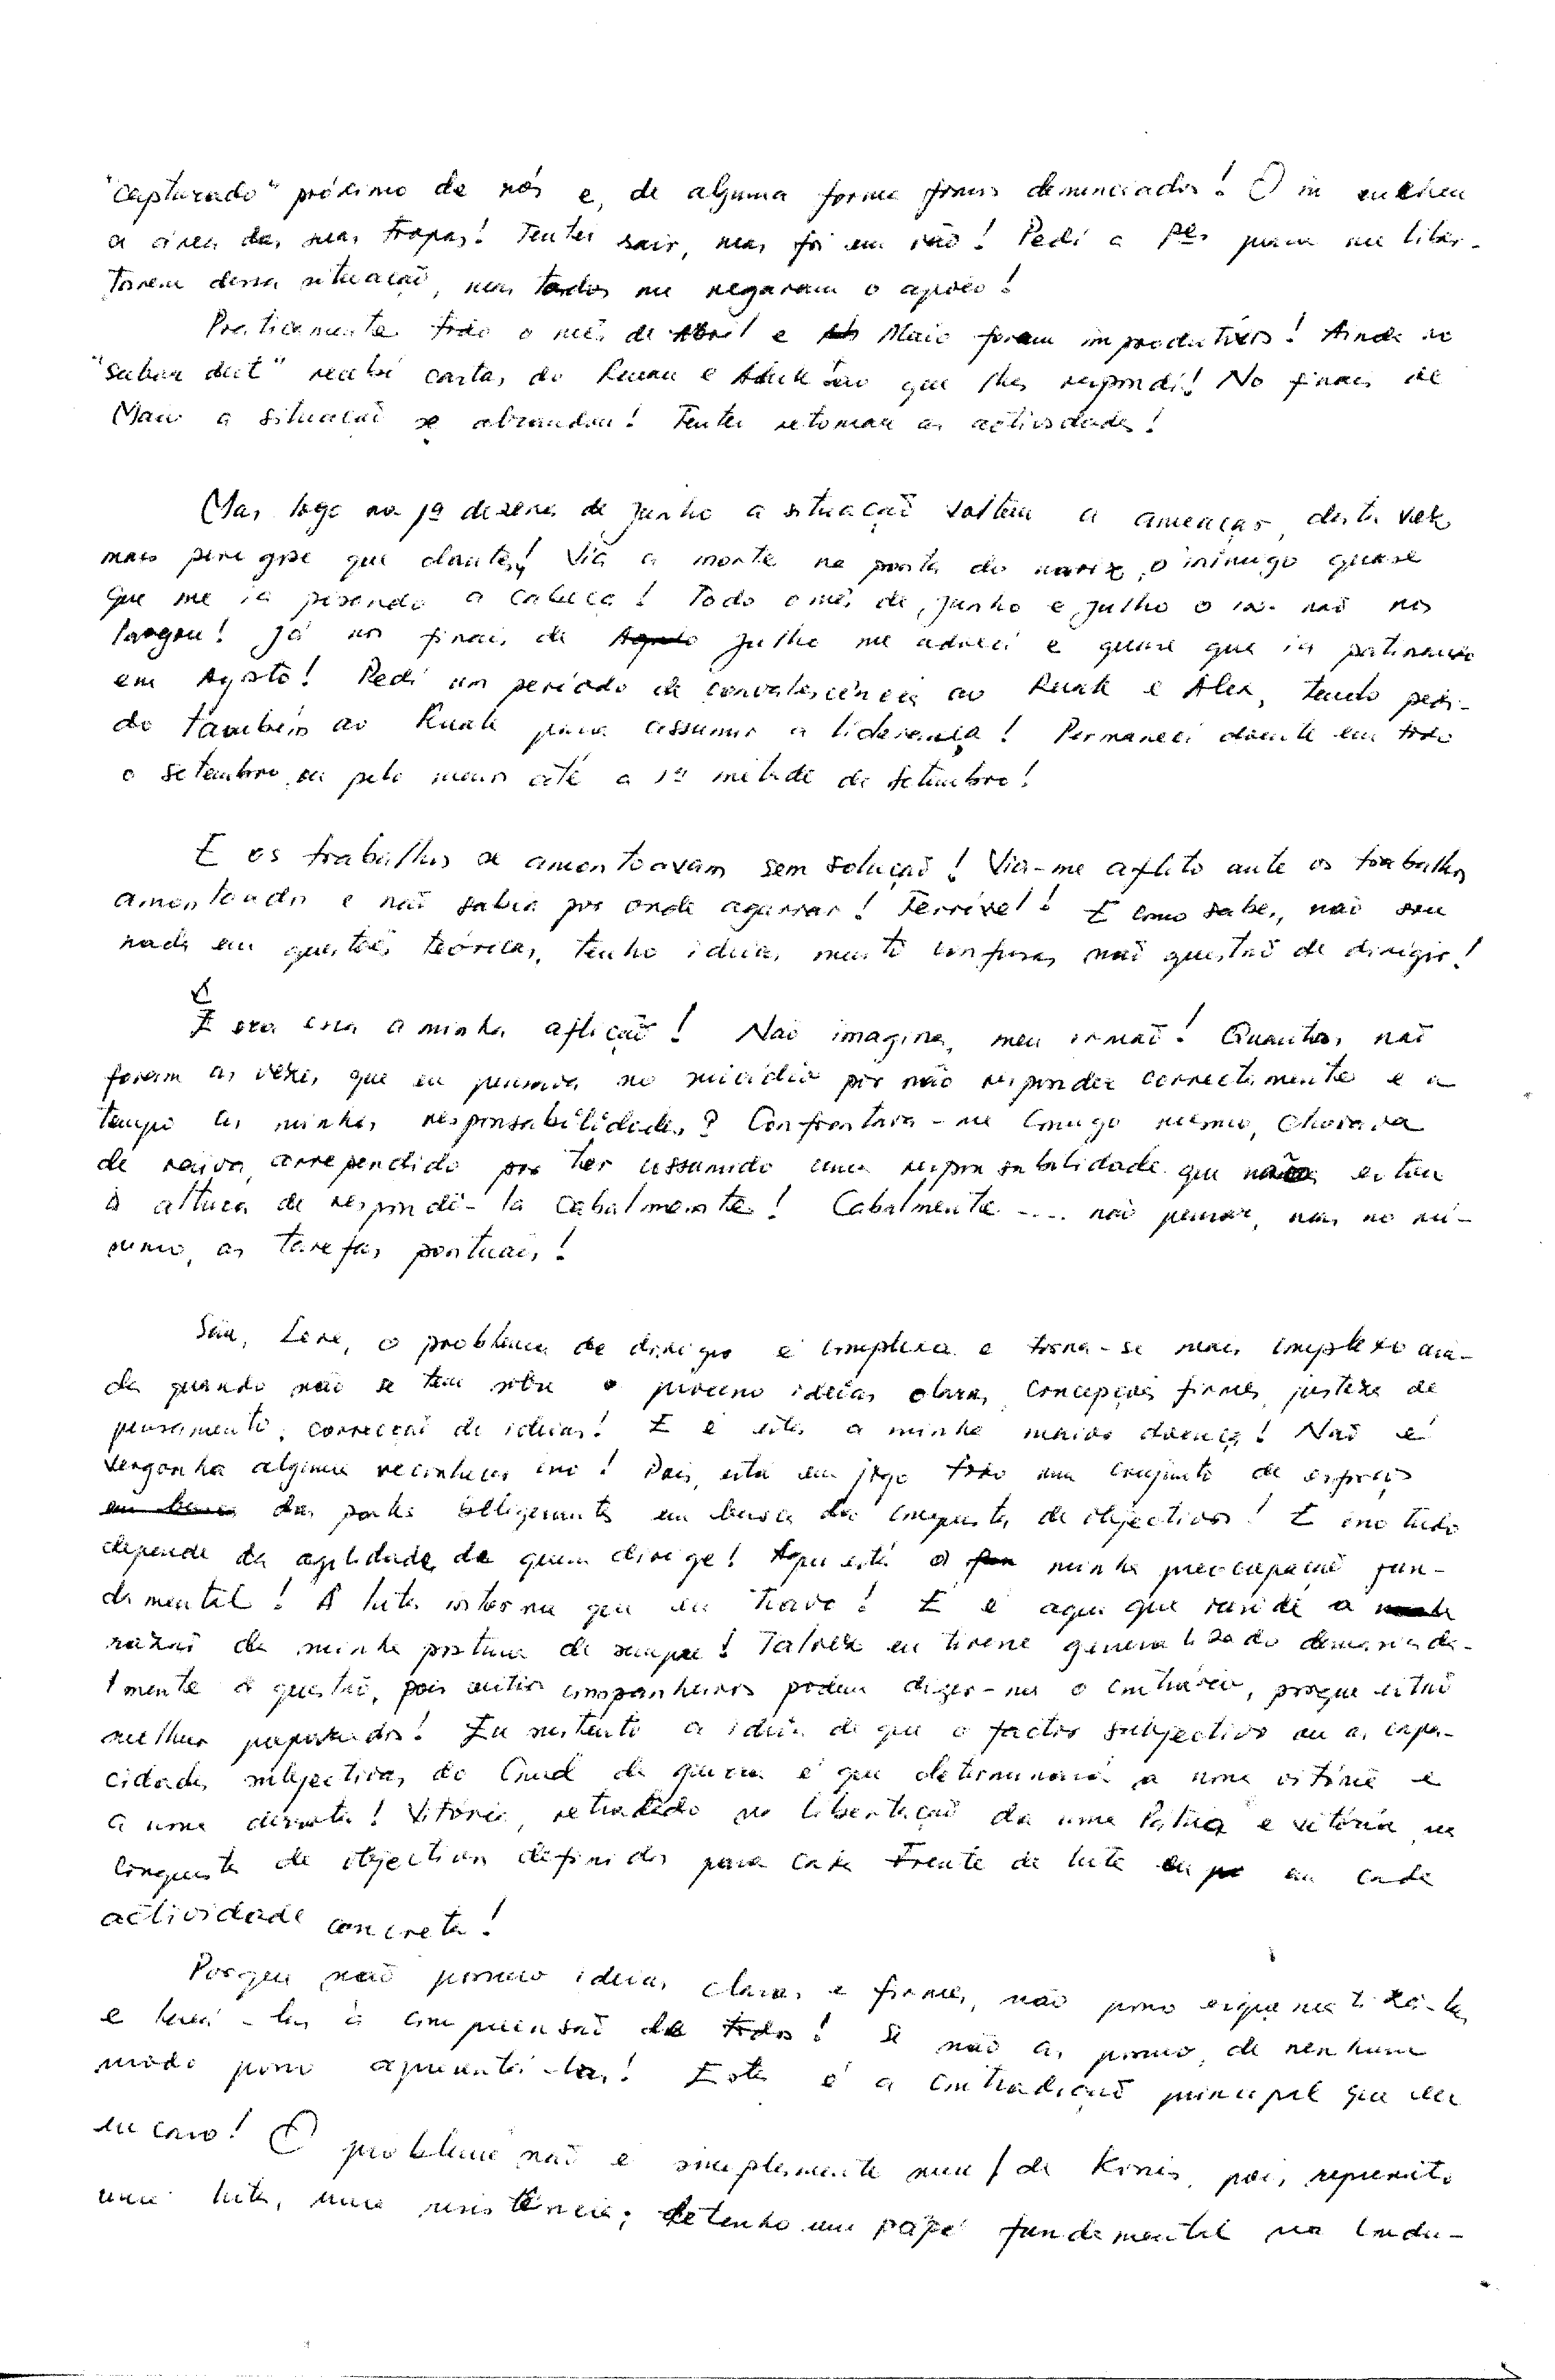 "capturado" próximo de nós e, de alguma forma fomos denunciados! O in encheu
a área das suas tropas! Tentei sair, mas foi em vão! Pedi a pes para me liber-
tarem dessa situação, mas todos me negaram o apoio!
Praticamente todo o mês de Abril e Maio foram improdutivos! Ainda no
recebi cartas do e que lhes respondi! No finais de
Maio a situação se abrandou! Tentei retomar as actividades!
Mas logo na 1ª dezena de Junho a situação voltou a ameaçar, desta vez
mais perigosa que dantes! Via a morte na ponta do nariz, o inimigo quase
que me ia pisando a cabeça! Todo o mês de Junho e Julho o in. não nos
largou! Já nos finais de Julho me adoeci e quase que ia patinando
em Agosto! Pedi um período de convalescência ao Ruak e Alex, tendo pedi-
do também ao Ruak para assumir a liderança! Permaneci doente em todo
o Setembro, ou pelo menos até a 1ª metade de Setembro!
E os trabalhos se amontoavam sem solução! Via-me aflito ante os trabalhos
amontoados e não sabia por onde agarrar! Terrível! E como sabes, não sou
nada em questões teóricas, tenho ideias muito confusas na questão de dirigir!
E era essa a minha aflição! Não imagina, meu irmão! Quantas não
foram as vezes que eu pensava no suicídio por não responder correctamente e a
tempo as minhas responsabilidades? Confrontava-me comigo mesmo, chorava
de raiva, arrependido por ter assumido uma responsabilidade que não estou
à altura de respondê-la cabalmente! Cabalmente .... não pensar, mas no mí-
nimo, as tarefas pontuais!
Sim, Lere, o problema de dirigir é complexa e torna-se mais complexo ain-
da quando não se tem sobre o processo ideias claras, concepções firmes, justeza de
pensamento, correcção de ideias! E é esta a minha maior doença! Não é
vergonha alguma reconhecer isso! Pois, está em jogo todo um conjunto de esforços
das partes beligerantes em busca da conquista de objectivos! E isso tudo
depende da agilidade de quem dirige! Aqui está a minha preocupação fun-
damental! A luta interna que eu travo! E é aqui que reside a
razão da minha postura de sempre! Talvez eu tivesse generalizado demasiada-
mente a questão, pois outros companheiros podem dizer-me o contrário, porque estão
melhor preparados! Eu sustento a ideia de que o factor subjectivo ou as capa-
cidades subjectivas do Cmd da guerra é que determinará a uma vitória e
a uma derrota! Vitória, retratado na libertação da uma Pátria e vitória na
conquista de objectivos definidos para cada Frente de luta ou em cada
actividade concreta!
Porque não possuo ideias claras e firmes, não posso esquematizá-las
e levá-las à compreensão de todos! Se não as possuo, de nenhum
modo posso apresentá-las! Esta é a contradição principal que eu
encaro! O problema não é simplesmente meu / de Konis, pois, represento
uma luta, uma resistência; detenho um papel fundamental na condu-